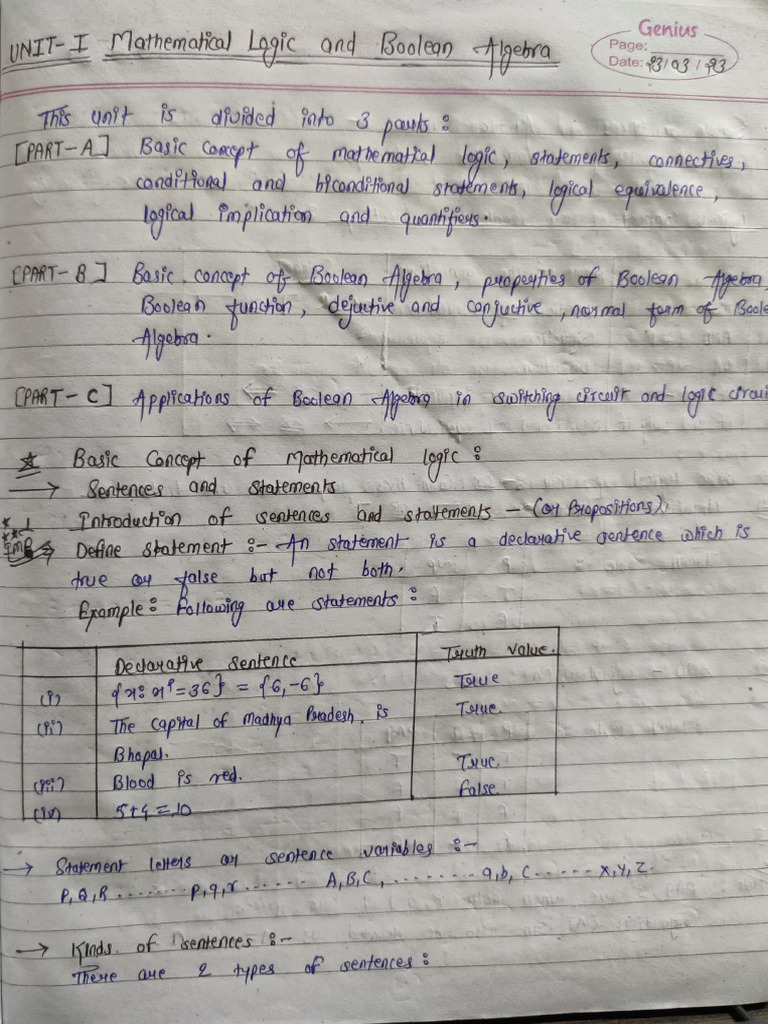 Genius
UNIT-I Mathematical Logic and Boolean Algebra
Page:
Date: 23/03/23
This unit is divided into 3 parts :
[PART-A] Basic concept of mathematical logic, statements, connectives,
conditional and biconditional statements, logical equivalence,
logical implication and quantifiers.
[PART-B] Basic concept of Boolean Algebra, properties of Boolean Algebra
Boolean function, dejuctive and conjuctive, normal form of Boole
Algebra.
[PART-C] Applications of Boolean Algebra in switching circuit and logic circui
Basic Concept of Mathematical logic :
→ Sentences and Statements
1 Introduction of sentences and statements - (or Propositions).
IMP Define statement :- An statement is a declarative sentence which is
true or false but not both.
Example : Following are statements :
Declarative sentence Truth value.
(i) {x: x² = 36} = {6, -6} True
(ii) The capital of Madhya Pradesh is True.
Bhopal.
(iii) Blood is red. True.
(iv) 5+4 = 10 False
→ Statement letters or sentence variables :-
P, Q, R ........ p, q, r ....... A, B, C, ......... a, b, c ....... x, y, z.
→ Kinds of sentences :-
There are 2 types of sentences :